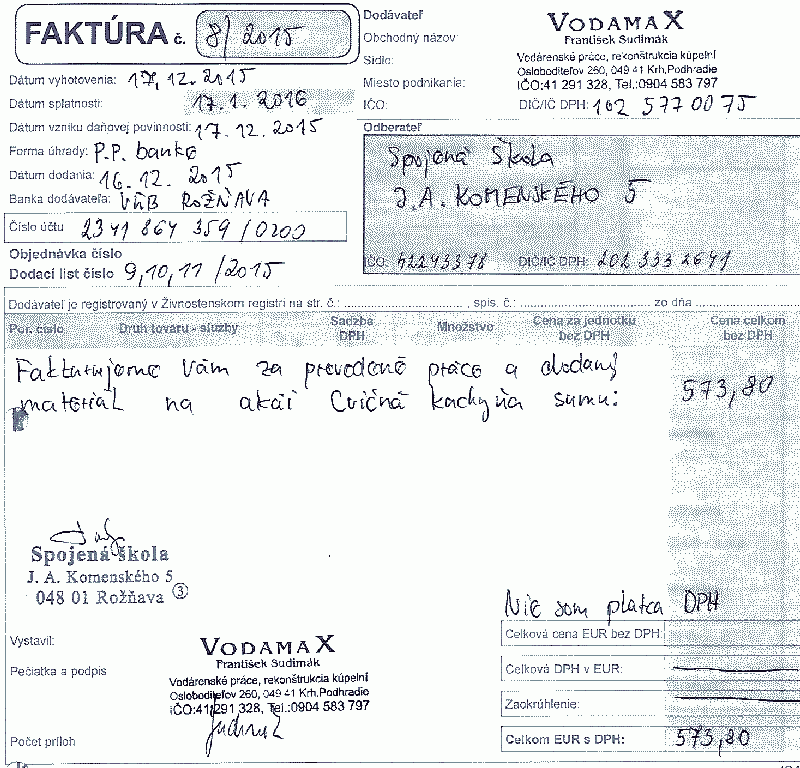 FAKTÚRA č. 8/2015
Dátum vyhotovenia: 17.12.2015
Dátum splatnosti: 17.1.2016
Dátum vzniku daňovej povinnosti: 17.12.2015
Forma úhrady: P.P. banke
Dátum dodania: 16.12.2015
Banka dodávateľa: VÚB ROŽŇAVA
Číslo účtu 2341 864 359/0200
Objednávka číslo
Dodací list číslo 9,10,11/2015
Dodávateľ
Obchodný názov:
Sídlo:
Miesto podnikania:
IČO:
VODAMAX
František Sudimák
Vodárenské práce, rekonštrukcia kúpelní
Osloboditeľov 260, 049 41 Krh.Podhradie
IČO:41 291 328, Tel.:0904 583 797
DIČ/IČ DPH: 102 577 00 75
Odberateľ
Spojená Škola
J.A. KOMENSKÉHO 5
IČO: 42243378 DIČ/IČ DPH: 202 333 2641
Dodávateľ je registrovaný v Živnostenskom registri na str. č.: spis. č.: zo dňa
Por. číslo Druh tovaru - služby Sadzba DPH Množstvo Cena za jednotku bez DPH Cena celkom bez DPH
Fakturujeme Vám za prevedené práce a dodaný
materiál na akci Cvičná kuchyňa sumu: 573,80
Spojená škola
J. A. Komenského 5
048 01 Rožňava 3
Nie som platca DPH
Celková cena EUR bez DPH:
Celková DPH v EUR:
Zaokrúhlenie:
Celkom EUR s DPH: 573,80
Vystavil:
Pečiatka a podpis
Počet príloh
VODAMAX
František Sudimák
Vodárenské práce, rekonštrukcia kúpelní
Osloboditeľov 260, 049 41 Krh.Podhradie
IČO:41 291 328, Tel.:0904 583 797